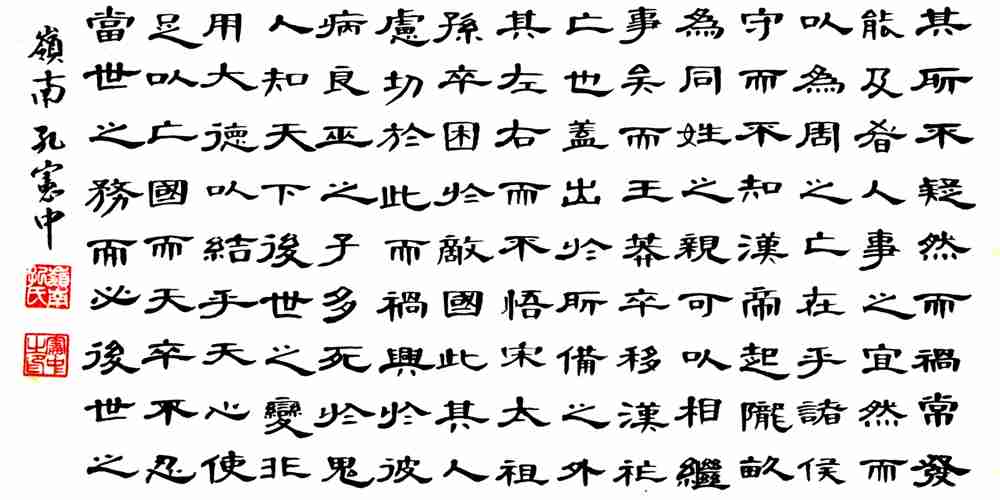 其所不疑然而禍常發
能及者人事之宜然而
以為周之亡在乎諸侯
守而不知漢帝起隴畝
為同姓之親可以相繼
事矣而王莽卒移漢祚
亡也蓋出於所備之外
其左右而不悟宋太祖
孫卒困於敵國此其人
慮切於此而禍興於彼
病良巫之子多死於鬼
人知天下後世之變非
用大德以結乎天心使
足以亡國而天卒不忍
當世之務而必後世之
嶺南孔憲中
嶺南孔氏
憲中之印